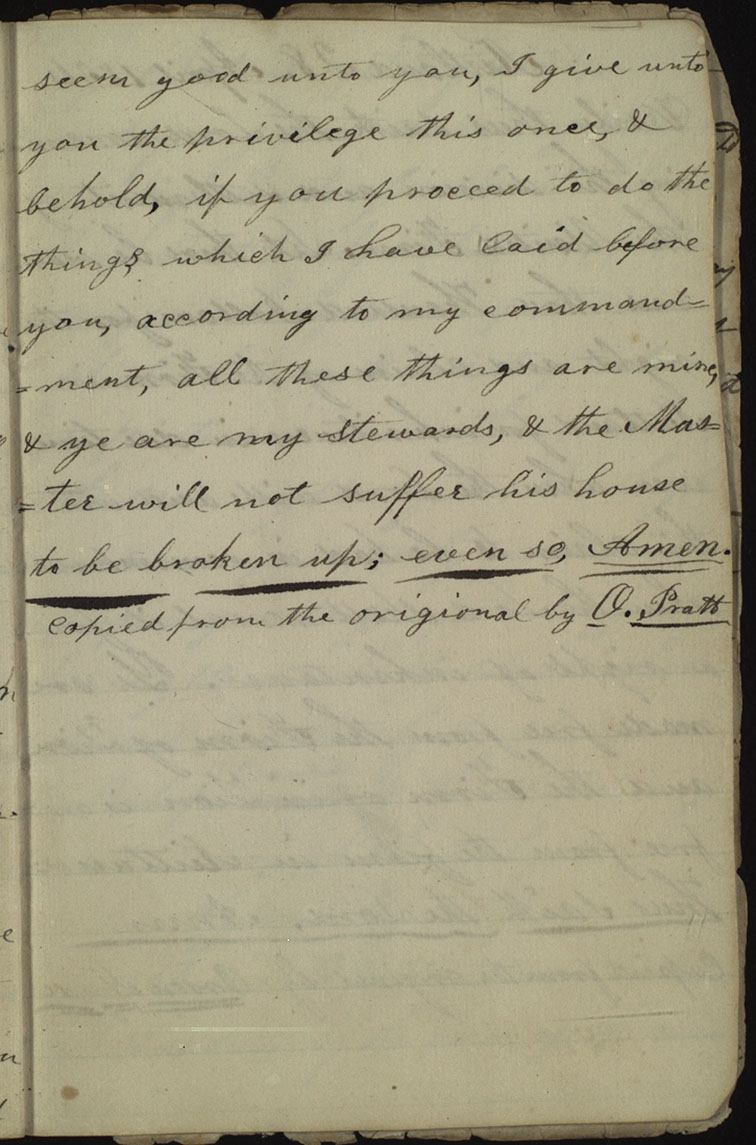 seem good unto you, I give unto
you the privilege this once, &
behold, if you proceed to do the
things which I have laid before
you, according to my command=
=ment, all these things are mine,
& ye are my stewards, & the Mas=
=ter will not suffer his house
to be broken up; even so, Amen.
copied from the origional by O. Pratt